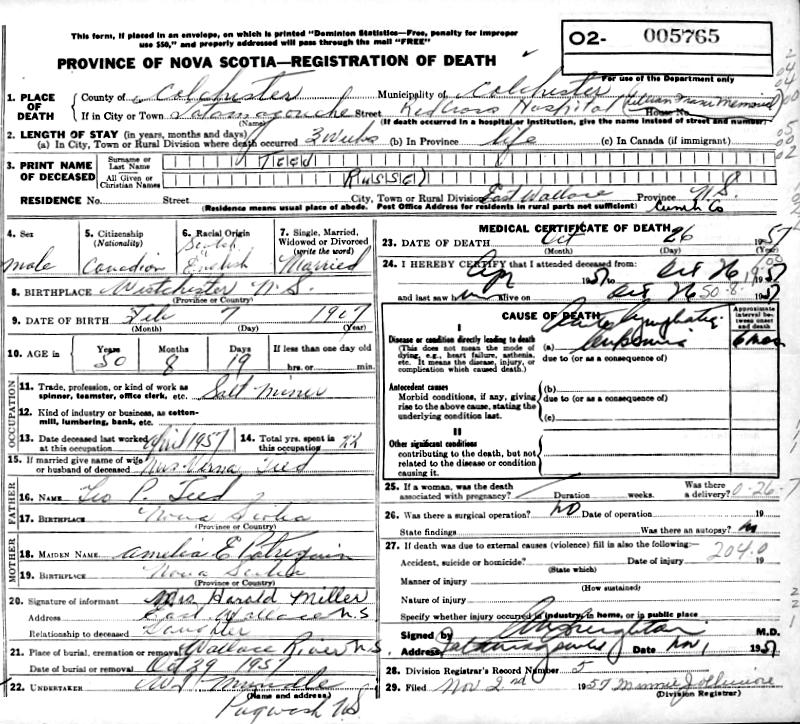 This form, if placed in an envelope, on which is printed "Dominion Statistics—Free, penalty for improper
use $50," and properly addressed will pass through the mail "FREE"
PROVINCE OF NOVA SCOTIA—REGISTRATION OF DEATH
02- 005765
For use of the Department only
1. PLACE OF DEATH County of Colchester Municipality of Colchester
If in City or Town Tatamagouche Street Red Cross Hospital House No.
(Name) (If death occurred in a hospital or institution, give the name instead of street and number)
2. LENGTH OF STAY (in years, months and days)
(a) In City, Town or Rural Division where death occurred 3 Weeks (b) In Province life (c) In Canada (if immigrant)
3. PRINT NAME OF DECEASED Surname or Last Name TEED
All Given or Christian Names RUSSEL
RESIDENCE No. Street City, Town or Rural Division East Wallace Province N.S.
(Residence means usual place of abode. Post Office Address for residents in rural parts not sufficient) Cumb Co
4. Sex male
5. Citizenship (Nationality) Canadian
6. Racial Origin Scotch English
7. Single, Married, Widowed or Divorced (write the word) Married
8. BIRTHPLACE Westchester N.S.
(Province or Country)
9. DATE OF BIRTH Feb 7 1907
(Month) (Day) (Year)
10. AGE in Years 50 Months 8 Days 19 If less than one day old hrs. or min.
OCCUPATION
11. Trade, profession, or kind of work as spinner, teamster, office clerk, etc. Salt Miner
12. Kind of industry or business, as cotton-mill, lumbering, bank, etc.
13. Date deceased last worked at this occupation April 1957 14. Total yrs. spent in this occupation 22
15. If married give name of wife or husband of deceased Mrs Verna Teed
FATHER
16. NAME Geo P. Teed
17. BIRTHPLACE Nova Scotia
(Province or Country)
MOTHER
18. MAIDEN NAME Amelia E Patriquin
19. BIRTHPLACE Nova Scotia
(Province or Country)
20. Signature of informant Mrs Harold Miller
Address East Wallace N.S
Relationship to deceased Daughter
21. Place of burial, cremation or removal Wallace River N.S
Date of burial or removal Oct 29 1957
22. UNDERTAKER
(Name and address)
Pugwash NS
MEDICAL CERTIFICATE OF DEATH
23. DATE OF DEATH Oct 26 1957
(Month) (Day) (Year)
24. I HEREBY CERTIFY that I attended deceased from:
Apr 1957 to Oct 26 1957
and last saw him alive on Oct 26 1957
50-8-
CAUSE OF DEATH
Approximate interval between onset and death
I
Disease or condition directly leading to death
(This does not mean the mode of dying, e.g., heart failure, asthenia, etc. It means the disease, injury, or complication which caused death.)
(a) Acute Lymphatic Leukemia 6 mos
due to (or as a consequence of)
Antecedent causes
Morbid conditions, if any, giving rise to the above cause, stating the underlying condition last.
(b)
due to (or as a consequence of)
(c)
II
Other significant conditions
contributing to the death, but not related to the disease or condition causing it.
25. If a woman, was the death associated with pregnancy? Duration weeks. Was there a delivery?
0-26-7
26. Was there a surgical operation? no Date of operation 19
State findings Was there an autopsy? no
27. If death was due to external causes (violence) fill in also the following:—
204.0
Accident, suicide or homicide? Date of injury 19
(State which)
Manner of injury
(How sustained)
Nature of injury
Specify whether injury occurred in industry, in home, or in public place
Signed by M.D.
Address Tatamagouche Date Nov 1 1957
28. Division Registrar's Record Number 5
29. Filed Nov 2nd 1957 Minnie J.
(Division Registrar)